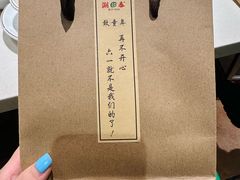 致童年
再不开心
六一就不是我们的了！